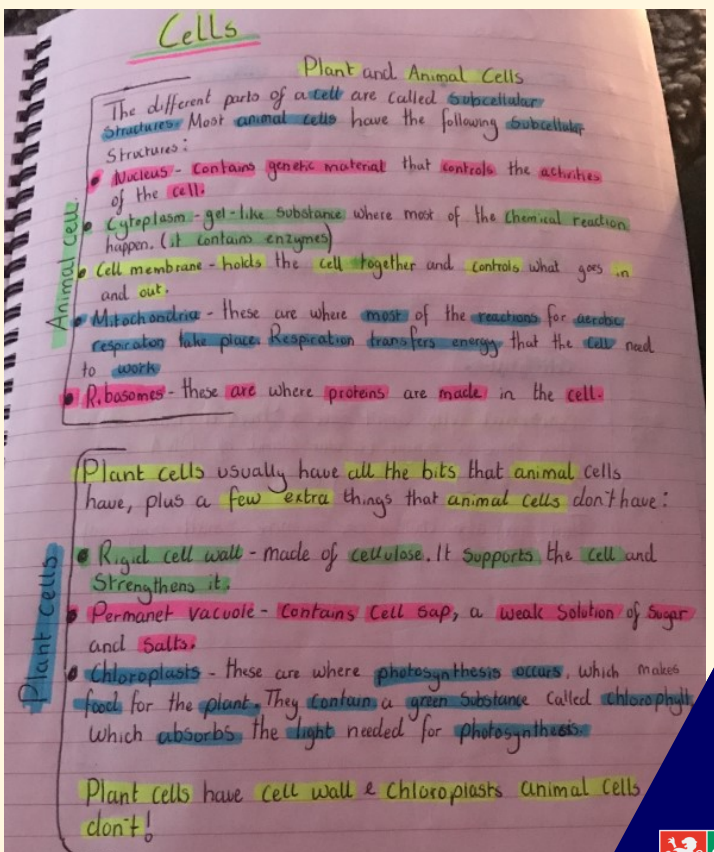 Cells
Plant and Animal Cells
The different parts of a cell are called Subcellular
Structures. Most animal cells have the following Subcellular
Structures:
Animal cell.
• Nucleus - Contains genetic material that controls the activities
of the cell.
• Cytoplasm - gel-like Substance where most of the Chemical reaction
happen. (it contains enzymes)
• Cell membrane - holds the cell together and controls what goes in
and out.
• Mitochondria - these are where most of the reactions for aerobic
respiration take place. Respiration transfers energy that the cell need
to work
• Ribosomes - these are where proteins are made in the cell.
Plant Cells
Plant cells usually have all the bits that animal cells
have, plus a few extra things that animal cells don't have:
• Rigid cell wall - made of cellulose. It Supports the cell and
Strengthens it.
• Permanet Vacuole - Contains Cell Sap, a weak Solution of Sugar
and Salts.
• Chloroplasts - these are where photosynthesis occurs, which makes
food for the plant. They Contain a green Substance called chlorophyll
which absorbs the light needed for photosynthesis.
Plant cells have cell wall & Chloroplasts animal Cells
don't!